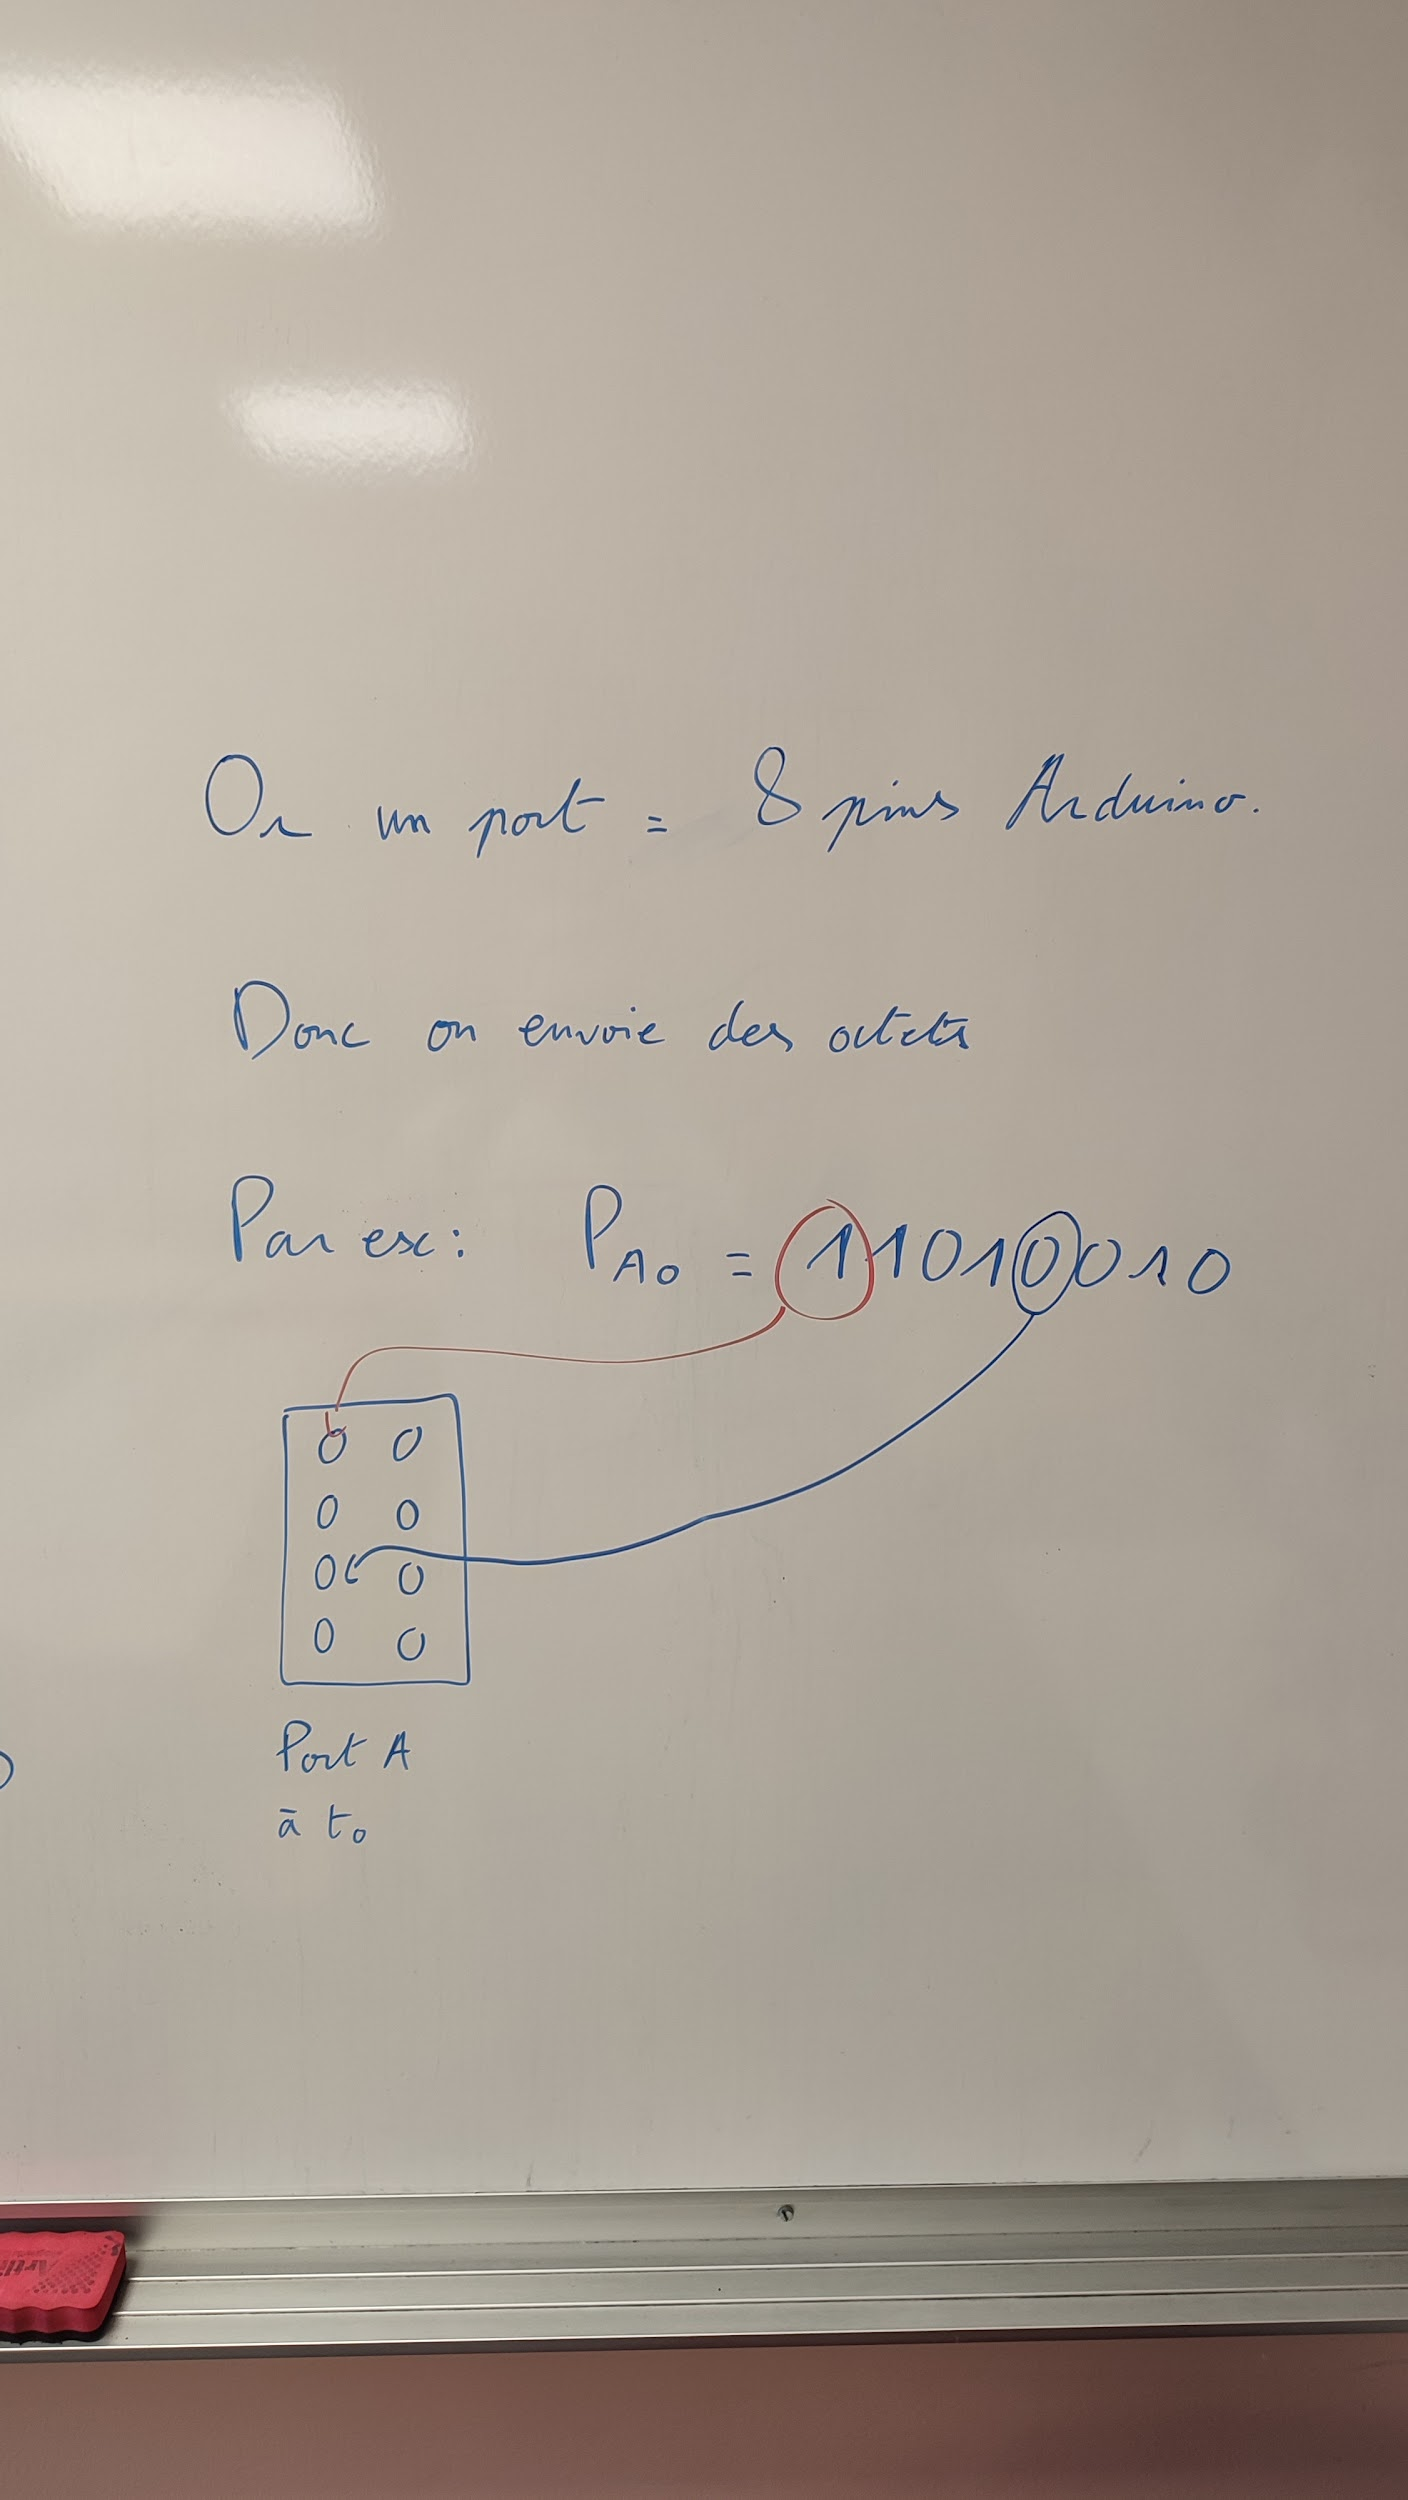 Or un port = 8 pins Arduino.
Donc on envoie des octets
Par ex: PA0 = 11010010
0 0
0 0
0 0
0 0
Port A
à t0